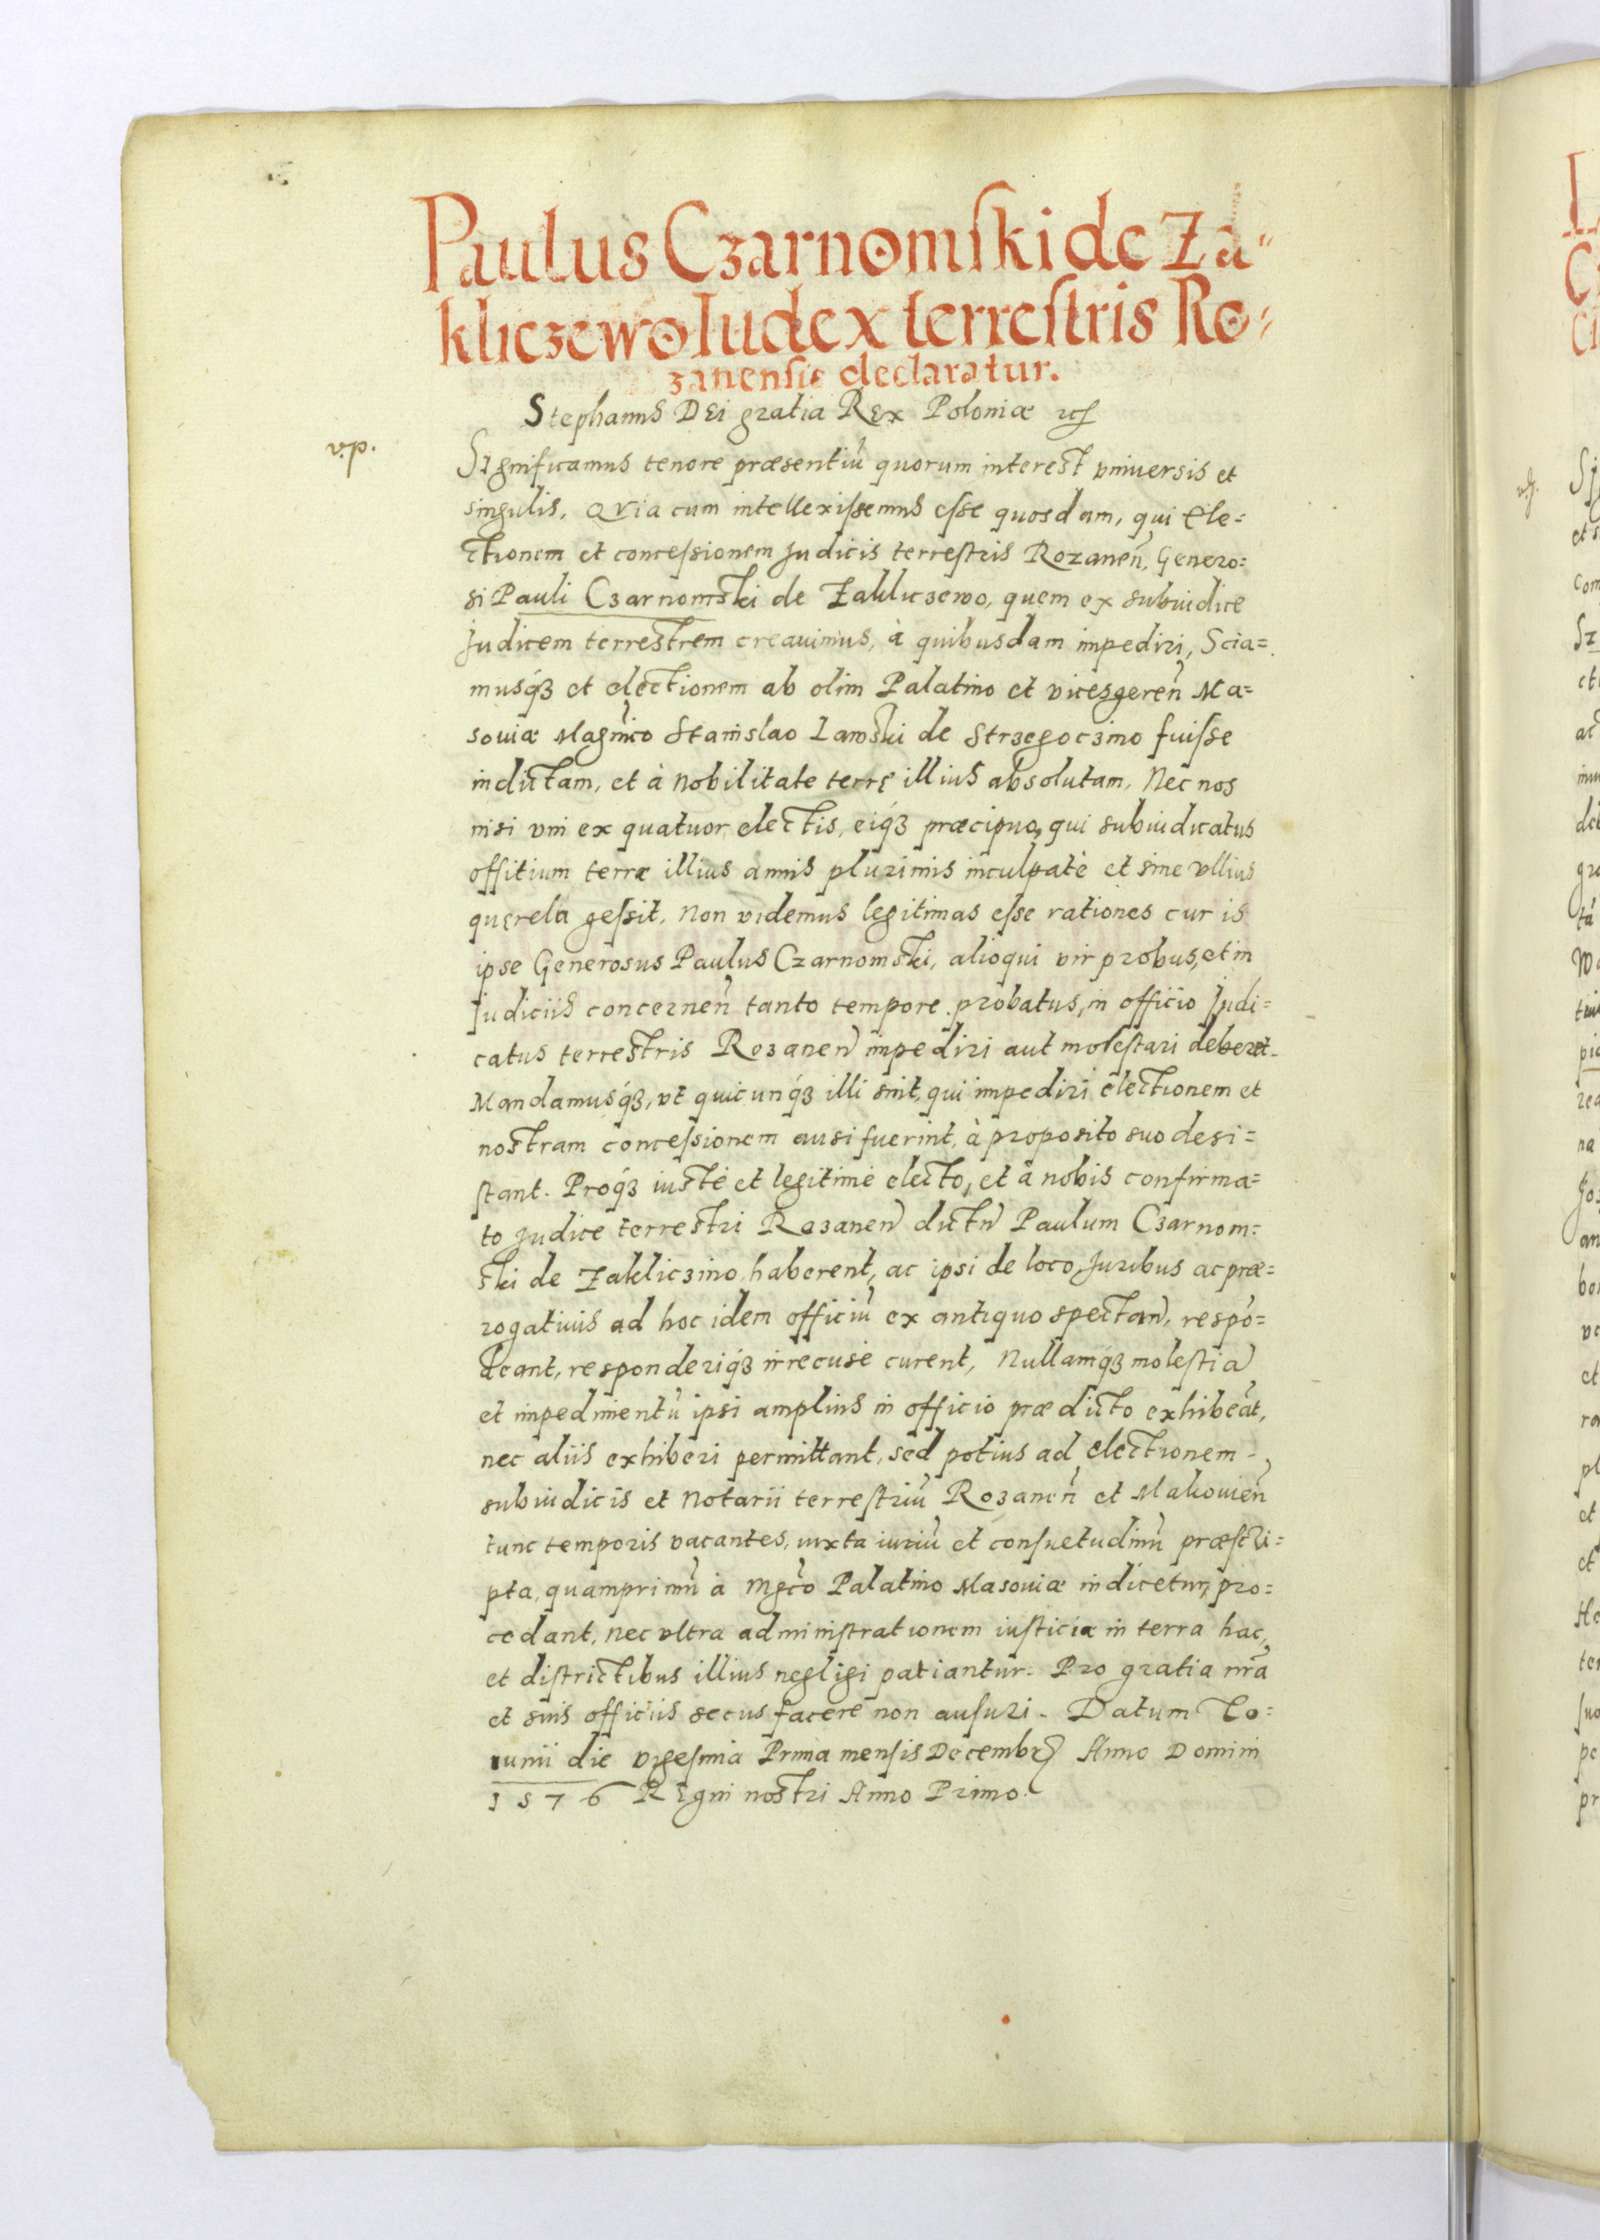 Paulus Czarnomski de Za-
kliczewo Iudex terrestris Ro-
zanensis declaratur.
Stephanus DEi gratia REx Poloniæ
v.p.
SIgnificamus tenore præsentiũ quorum interest vniuersis et
singulis, QVia cum intellexissemus esse quosdam, qui Ele=
ctionem et concessionem Judicis terrestris Rozaneñ, Genero=
si Pauli Czarnomski de Zakliczewo, quem ex subiudice
Judicem terrestrem creauimus, à quibusdam impediri, Scia=
musq́3 et electionem ab olim Palatino et vicesgereñ Ma=
souiæ Magnico Stanislao Lawski de Strzegoczino fuisse
indictam, et à Nobilitate terrę illius absolutam, Nec nos
nisi vni ex quatuor electis, eiq́3 præcipuo, qui subiudicatus
offitium terræ illius annis plurimis inculpatè et sine vllius
quęrela gessit, Non videmus legitimas esse rationes cur is
ipse Generosus Paulus Czarnomski, alioqui vir probus, et in
Judiciis concerneñ tanto tempore probatus, in officio Judi=
catus terrestris Rozaneñ impediri aut molestari deberet.
Mandamusq́3, vt quicunq́3 illi sint, qui impediri electionem et
nostram concessionem ausi fuerint, à proposito suo desi=
stant. Proq́3 iustè et legitimè electo, et à nobis confirma=
to Judice terrestri Rozaneñ dictñ Paulum Czarnom=
ski de Zakliczino haberent, ac ipsi de loco, Juribus ac præ=
rogatiuis ad hoc idem officiũ ex antiquo spectañ, respõ=
deant, responderiq́3 irrecuse curent, Nullamq́3 molestiã
et impedimentũ ipsi amplius in officio prædicto exhibeãt,
nec aliis exhiberi permittant, sed potius ad electionem
subiudicis et Notarii terrestriũ Rozaneñ et Makouieñ
tunc temporis vacantes, iuxta iuriũ et consuetudinũ præscri=
pta, quamprimũ à Mgco Palatino Masouiæ indicetur, pro=
cedant, nec vltra administrationem iusticiæ in terra hac,
et districtibus illius negligi patiantur. Pro gratia nr̃a
et suis officiis secus facere non ausuri. Datum To=
runii die vigesima Prima mensis Decembr Anno Domini
1576 REgni nostri Anno Primo.